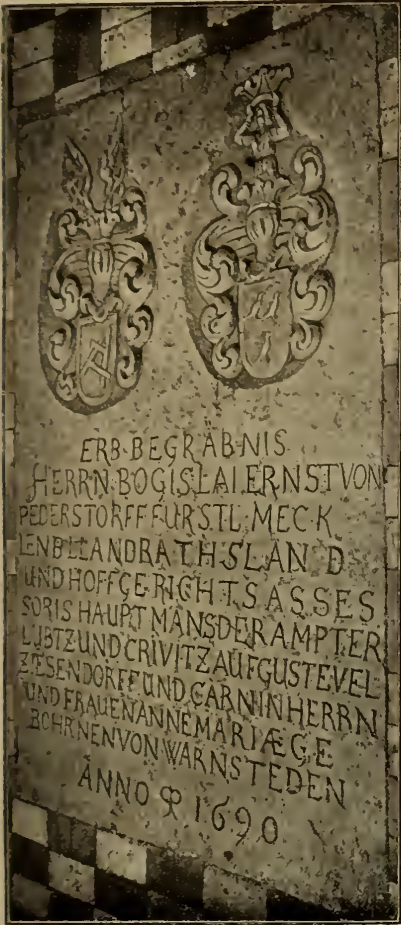 ERB·BEGRABNIS
HERRN·BOGISLAI·ERNST VON
PEDERSTORFF FÜRSTL: MECK
LENB: LANDRATHS LAND
UND HOFFGERICHTS ASSES
SORIS HAUPTMANS DER AMPTER
LÜBTZ UND CRIVITZ AUF GUSTEVEL
ZIESENDORFF UND GARNIN HERRN
UND FRAUEN ANNE MARIÆ GE
BOHRNEN VON WARNSTEDEN
ANNO 1690